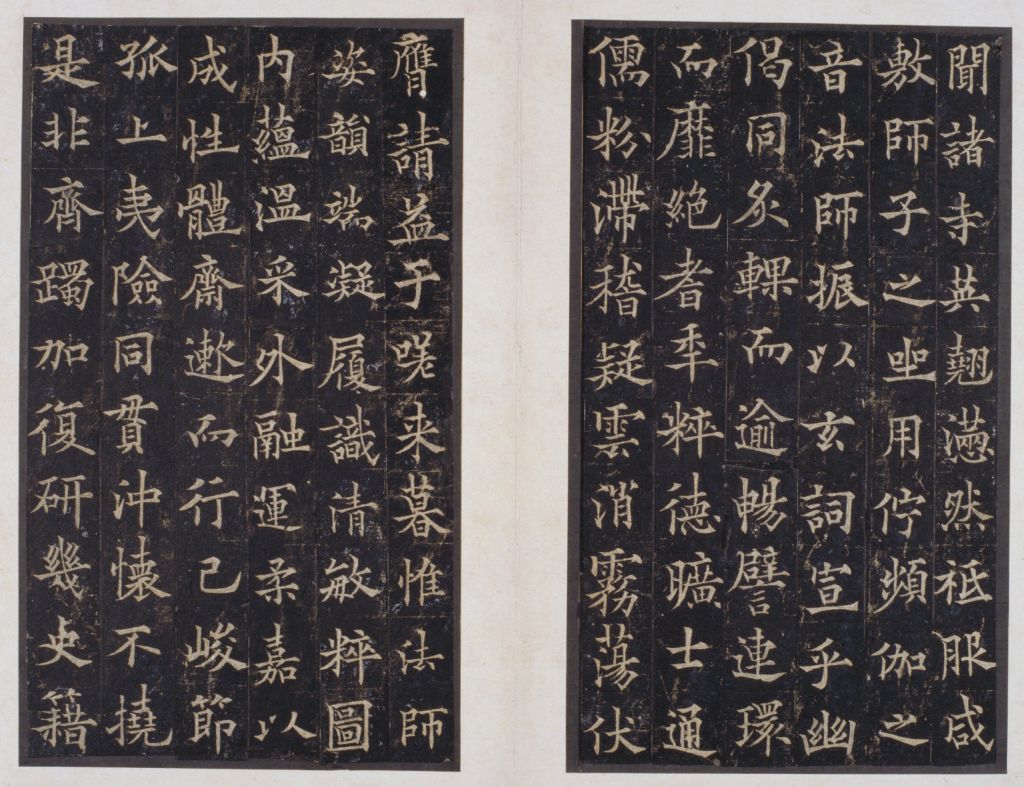 聞諸寺英翹懣然祗服咸
敷師子之㘴用佇頻伽之
音法師振以玄詞宣乎幽
偈同炙輠而逾暢譬連環
而靡絶者秊粹德曠士通
儒粉滯稽疑雲消霧蕩伏
膺請益于嗟来暮惟法師
姿韻端凝履識清敏粹圖
内蘊溫采外融運柔嘉以
成性體齋遬而行己峻節
孤上夷險同貫沖懷不撓
是非齊躅加復研幾史籍